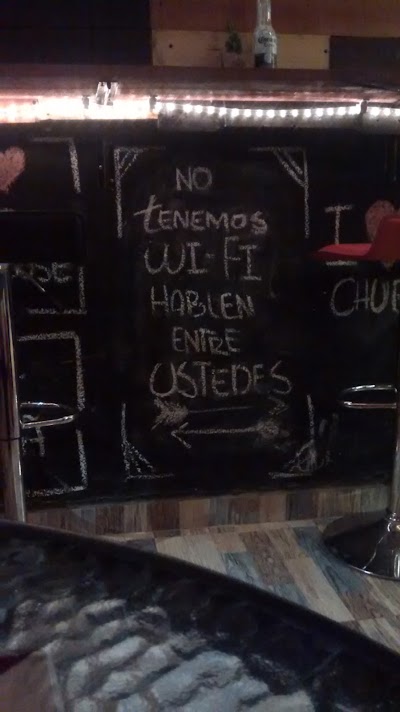 NO
tENEMOS
WI-FI
HABLEN
ENTRE
USTEDES
I